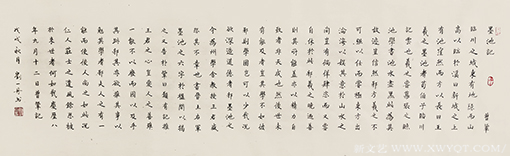 墨池記 曾鞏
臨川之城東有地隱然而
高以臨於溪曰新城之上
有池窪然而方以長曰王
羲之墨池者荀伯子臨川
記云也羲之嘗慕張芝臨
池學書池水盡黑此為其
故跡豈信然邪方羲之不
可強以仕而嘗極東方出
滄海以娛其意於山水之
間豈其徜徉肆恣而又嘗
自休於此邪羲之書晚乃善
則其所能蓋亦以精力自
致者非天成也然後世未
有能及者豈其學不如彼
邪則學固豈可以少哉況
欲深造道德者邪墨池之上
今為州學舍教授王君盛
恐其不章也書晉王右軍
墨池之六字於楹間以揭
之又告於鞏曰願有記推
王君之心豈愛人之善雖
一能不以廢而因以及乎
其跡邪其亦欲推其事以
勉其學者邪夫人之有一
能而使後人尚之如此況
仁人莊士之遺風餘思被
於來世者何如哉慶曆八
年九月十二日曾鞏記
戊戌秋月 劉
WWW.XWYQT.COM